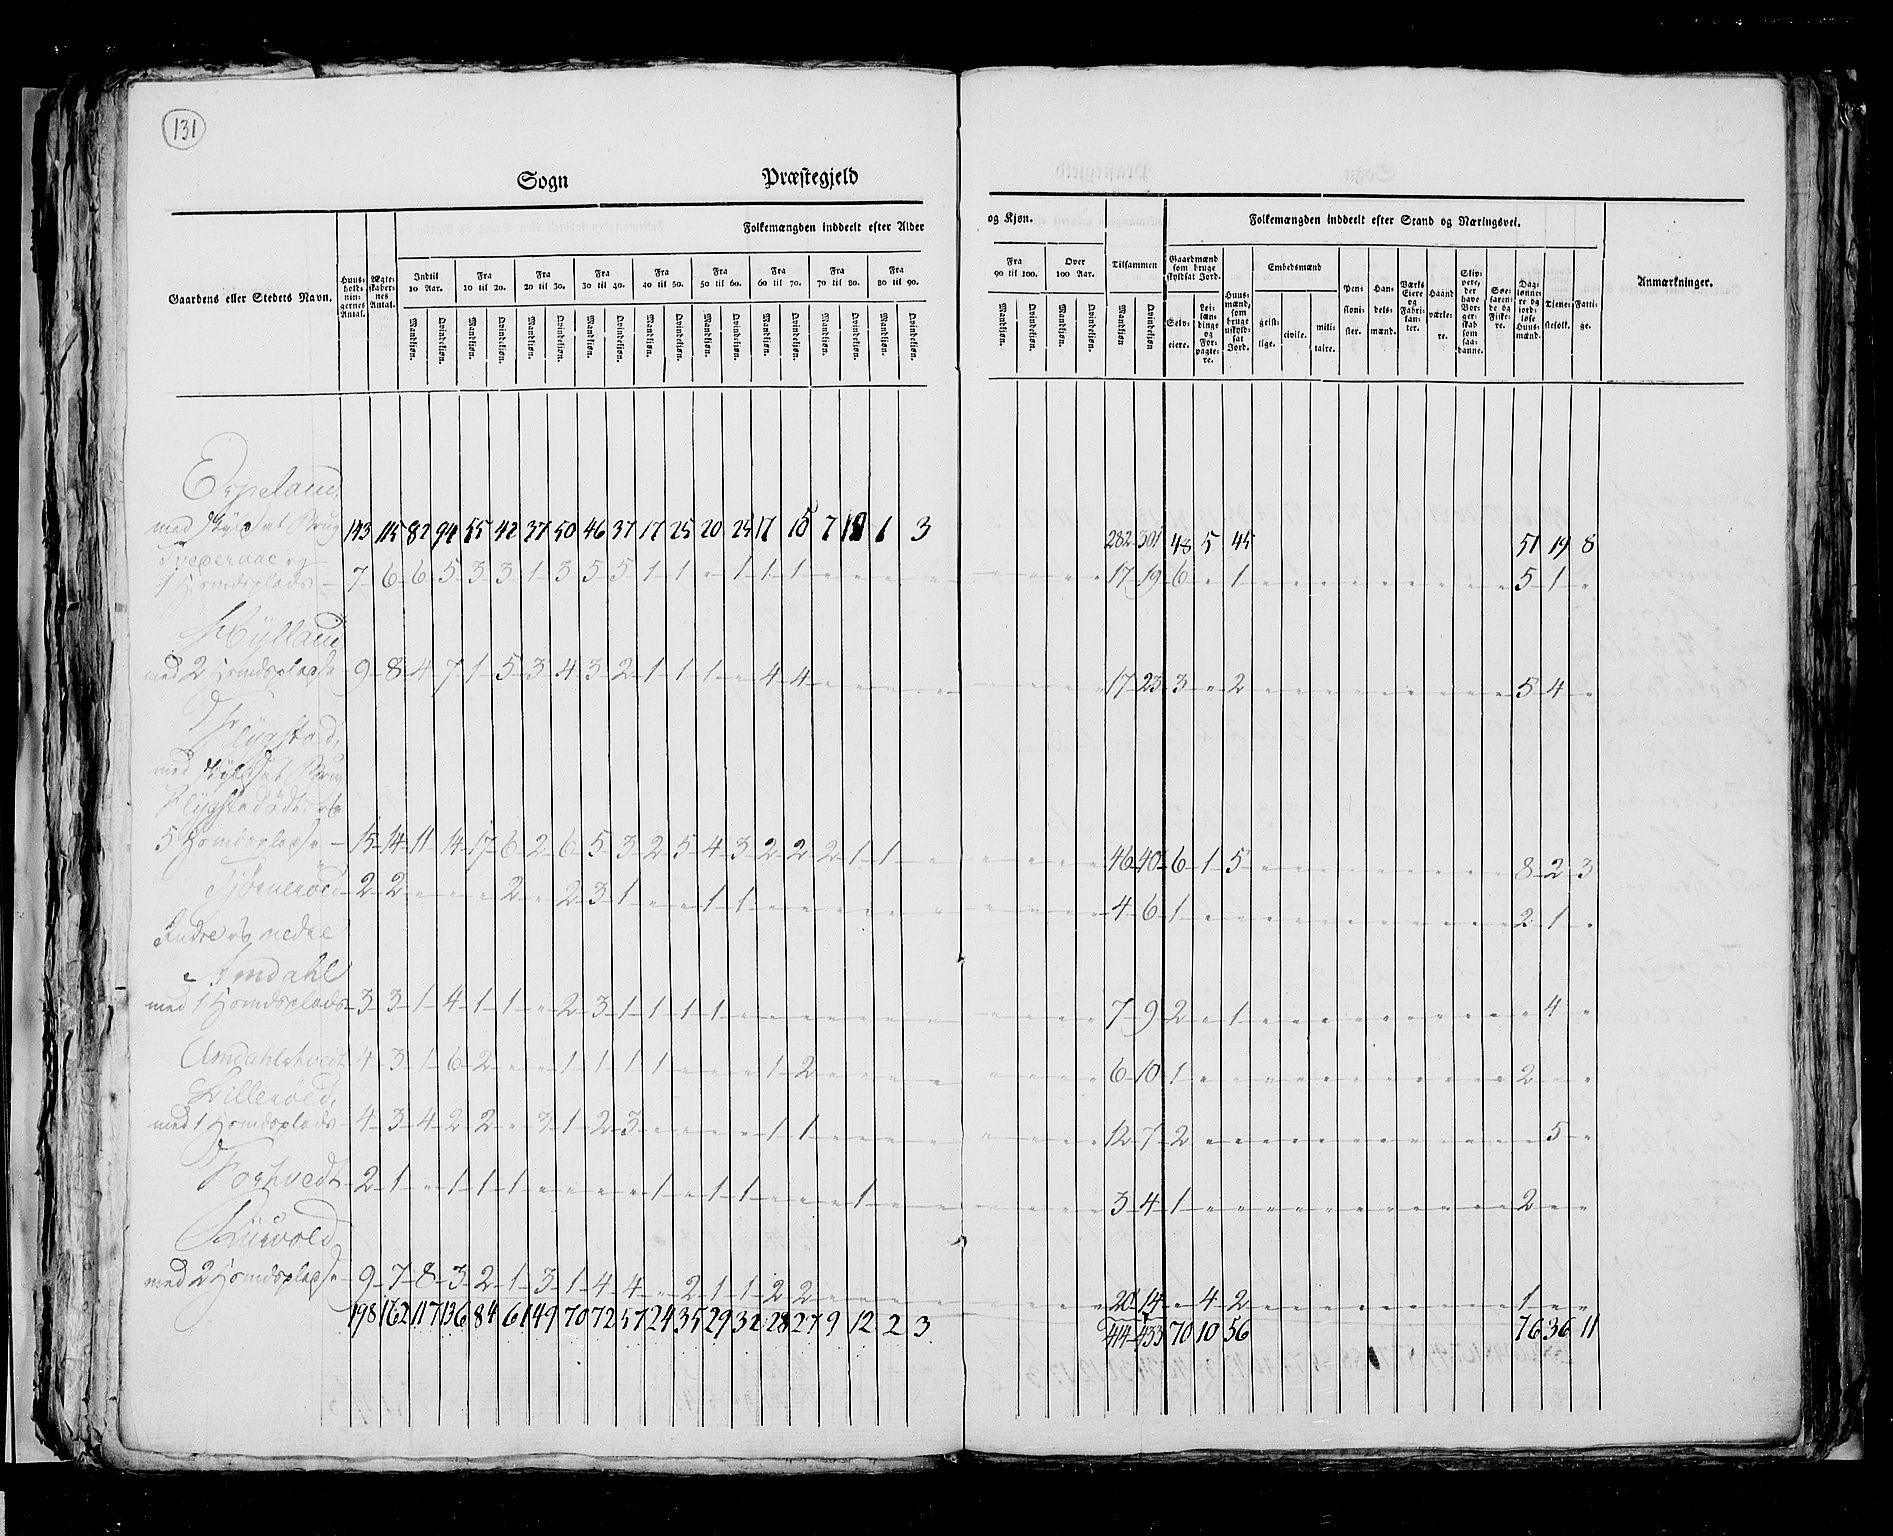 131
Sogn Præstegjeld
og Kjøn. Folkemængden inddeelt efter Stand og Næringsvei.
Folkemængden inddeelt efter Alder
Gaardens eller Stedets Navn. Huus-holdnin-gernes Antal. Ægte-skaber-nes Antal. Indtil 10 Aar. Fra 10 til 20. Fra 20 til 30. Fra 30 til 40. Fra 40 til 50. Fra 50 til 60. Fra 60 til 70. Fra 70 til 80. Fra 80 til 90. Fra 90 til 100. Over 100 Aar. Tilsammen Gaardmænd som bruge skyldsat Jord. Huus-mænd, som bruge uskyld-sat Jord. Embedsmænd Pen-sioni-ster. Han-dels-mænd. Værks Eiere og Fabri-kan-ter. Haand værke-re. Skip-pere, der have Bor-ger-skab som saa-danne. Søe-faren-de og Fiske-re. Dag-lønne-re og jord-løse Huus-mænd. Tjene-stefolk. Fatti-ge. Anmærkninger.
Mandkjøn. Qvindekjøn. Mandkjøn. Qvindekjøn. Mandkjøn. Qvindekjøn. Mandkjøn. Qvindekjøn. Mandkjøn. Qvindekjøn. Mandkjøn. Qvindekjøn. Mandkjøn. Qvindekjøn. Mandkjøn. Qvindekjøn. Mandkjøn. Qvindekjøn. Mandkjøn. Qvindekjøn. Mandkjøn. Qvindekjøn. Mandkjøn Qvindekjøn Selv-eiere. Lei-læn-dinge og For-pagte-re. geist-lige. civile. mili-taire.
Erpeland,
med skyldsat Brug 143 115 82 94 55 42 37 50 46 37 17 25 20 25 17 7 1 3 282 301 48 5 45 51 19 8
1 Homdsplads 7 6 6 5 3 3 1 3 5 5 1 1 " 1 1 1 17 19 6 " 1 5 1 "
Hylland
med 2 Homdspladse 9 8 4 7 1 5 3 4 3 2 1 1 1 " 4 4 17 23 3 " 2 5 4 "
Flygstad,
med skyldsat Brug
Flygstadødt. og
5 Homdspladse 15 14 11 14 17 6 2 6 5 3 2 5 4 3 2 2 2 1 1 " 46 40 6 1 5 8 2 3
Tjørnerød 2 2 " " " 2 " 2 3 1 " " 1 1 4 6 1 2 1 "
Indre og nedre
Amdahl
med 1 Homdsplads 3 3 1 4 1 1 " 2 3 1 1 1 1 7 9 2 " 1 4 "
Amdahlstvedt 4 3 1 6 2 " " 1 1 1 1 " " " 1 2 6 10 1 2 "
Lillerød,
med 1 Homdsplads 4 3 4 2 2 " 3 1 2 3 " " " " 1 1 12 7 2 5 "
Fostvedt 2 1 " 1 1 1 " " " " 1 " 1 1 " " " 1 3 4 1 2 "
med 2 Homdspladse 9 7 8 3 2 1 3 1 4 4 " 2 1 1 2 2 20 14 " 4 2 1 "
198 162 117 136 84 61 49 70 72 57 24 35 29 32 28 27 9 12 2 3 414 433 70 10 56 76 36 11